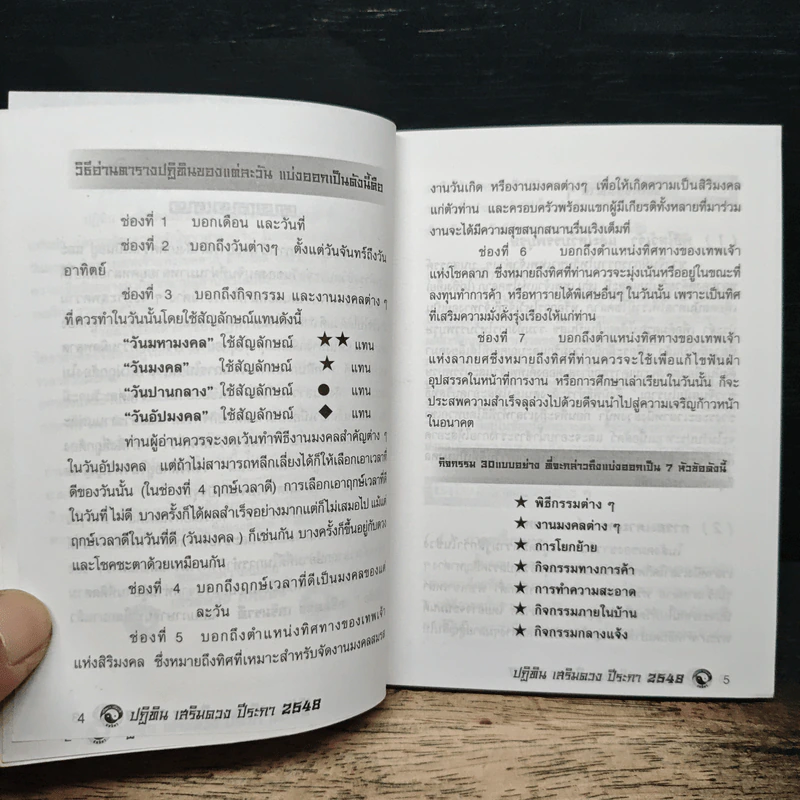 วิธีอ่านตารางปฏิทินของแต่ละวัน แบ่งออกเป็นดังนี้คือ
ช่องที่ 1 บอกเดือน และวันที่
ช่องที่ 2 บอกถึงวันต่างๆ ตั้งแต่วันจันทร์ถึงวัน
อาทิตย์
ช่องที่ 3 บอกถึงกิจกรรม และงานมงคลต่าง ๆ
ที่ควรทำในวันนั้นโดยใช้สัญลักษณ์แทนดังนี้
“วันมหามงคล” ใช้สัญลักษณ์ ★★ แทน
“วันมงคล” ใช้สัญลักษณ์ ★ แทน
“วันปานกลาง” ใช้สัญลักษณ์ ● แทน
“วันอัปมงคล” ใช้สัญลักษณ์ ◆ แทน
ท่านผู้อ่านควรจะงดเว้นทำพิธีงานมงคลสำคัญต่าง ๆ
ในวันอัปมงคล แต่ถ้าไม่สามารถหลีกเลี่ยงได้ก็ให้เลือกเอาเวลาที่
ดีของวันนั้น (ในช่องที่ 4 ฤกษ์เวลาดี) การเลือกเอาฤกษ์เวลาที่ดี
ในวันที่ไม่ดี บางครั้งก็ได้ผลสำเร็จอย่างมากแต่ก็ไม่เสมอไป แม้แต่
ฤกษ์เวลาดีในวันที่ดี (วันมงคล ) ก็เช่นกัน บางครั้งก็ขึ้นอยู่กับดวง
และโชคชะตาด้วยเหมือนกัน
ช่องที่ 4 บอกถึงฤกษ์เวลาที่ดีเป็นมงคลของแต่
ละวัน
ช่องที่ 5 บอกถึงตำแหน่งทิศทางของเทพเจ้า
แห่งสิริมงคล ซึ่งหมายถึงทิศที่เหมาะสำหรับจัดงานมงคลสมรส
4 ปฏิทิน เสริมดวง ปีระกา 2548
งานวันเกิด หรืองานมงคลต่างๆ เพื่อให้เกิดความเป็นสิริมงคล
แก่ตัวท่าน และครอบครัวพร้อมแขกผู้มีเกียรติทั้งหลายที่มาร่วม
งานจะได้มีความสุขสนุกสนานรื่นเริงเต็มที่
ช่องที่ 6 บอกถึงตำแหน่งทิศทางของเทพเจ้า
แห่งโชคลาภ ซึ่งหมายถึงทิศที่ท่านควรจะมุ่งเน้นหรืออยู่ในขณะที่
ลงทุนทำการค้า หรือหารายได้พิเศษอื่นๆ ในวันนั้น เพราะเป็นทิศ
ที่เสริมความมั่งคั่งรุ่งเรืองให้แก่ท่าน
ช่องที่ 7 บอกถึงตำแหน่งทิศทางของเทพเจ้า
แห่งลาภยศซึ่งหมายถึงทิศที่ท่านควรจะใช้เพื่อแก้ไขฟันฝ่า
อุปสรรคในหน้าที่การงาน หรือการศึกษาเล่าเรียนในวันนั้น ก็จะ
ประสพความสำเร็จลุล่วงไปด้วยดีจนนำไปสู่ความเจริญก้าวหน้า
ในอนาคต
กิจกรรม 30แบบอย่าง ที่จะกล่าวถึงแบ่งออกเป็น 7 หัวข้อดังนี้
★ พิธีกรรมต่าง ๆ
★ งานมงคลต่าง ๆ
★ การโยกย้าย
★ กิจกรรมทางการค้า
★ การทำความสะอาด
★ กิจกรรมภายในบ้าน
★ กิจกรรมกลางแจ้ง
ปฏิทิน เสริมดวง ปีระกา 2548 5